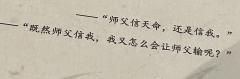 ——“师父信天命，还是信我。”
——“既然师父信我，我又怎么会让师父输呢？”